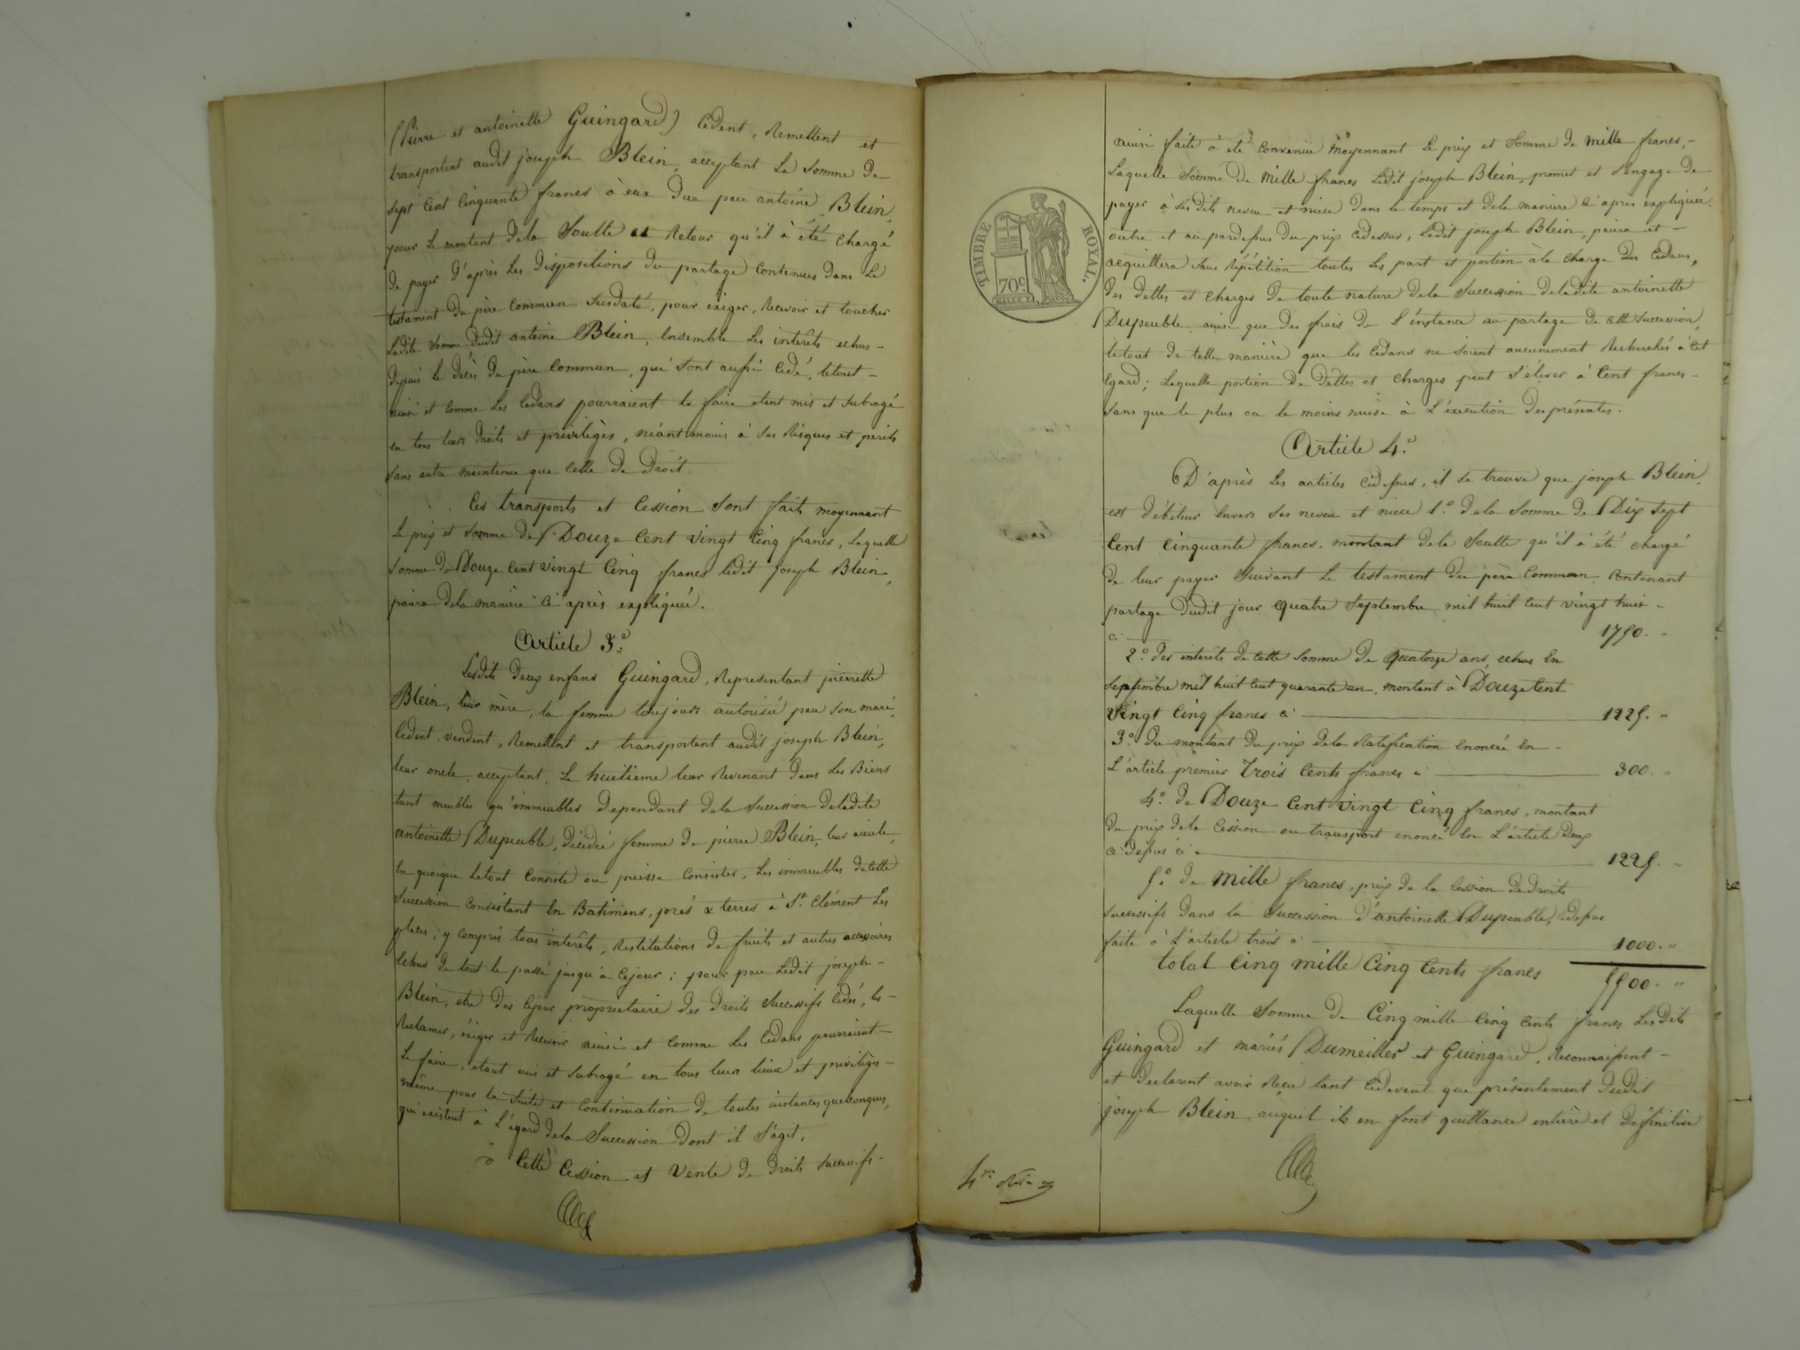 (Pierre et antoinette Guingard) Cédent, Remettent et
transportent audit joseph Blein, acceptant la Somme de
sept Cent Cinquante francs à eux Due par antoine Blein,
pour le montant dela Soulte et Retour qu'il à été chargé
de payer d'après Les Dispositions du partage Contenues dans Le
testament du père Commun Susdaté, pour exiger, Recevoir et toucher
Ladite Somme dudit antoine Blein, Ensemble Les interêts echus -
depuis le décès du père Commun, qui Sont aussi Cédé, letout -
ainsi et Comme Les Cedans pourraient le faire etant mis et Subrogé
en tous leurs droits et privilèges, néant moins à Ses Risques et périls
Sans autre maintenue que Celle de Droit.
Ces transports et Cession Sont faits moyennant
Le prix et Somme de Douze Cent vingt Cinq francs, Laquelle
Somme de Douze Cent vingt Cinq francs ledit joseph Blein,
paiera dela manière Ci après expliquée.
Article 3.°
Lesdits Deux enfans Guingard, Représentant pierrette
Blein, leur mère, la femme toujours autorisée par Son mari,
Cèdent, vendent, Remettent et transportent audit joseph Blein,
leur oncle, acceptant, Le huitième leur Revenant dans Les Biens
tant meubles qu'immeubles dependant dela Succession deladite
antoinette Dupeuble, décédée femme de pierre Blein, leur aieule,
En quoique Letout Consiste ou puisse Consister, Les immeubles de Cette
Succession Consistant En Batimens, prés & terres à S.t Clément Les
places, y Compris tous interêts, Restitutions de fruits et autres accessoires
échus de tout le passé jusqu'à Cejour ; pour par Ledit joseph -
Blein, etre Des Cejour proprietaire des droits Successifs Cédés, les -
Reclamer, éxiger et Recevoir ainsi et Comme Les Cedans pourraient
Le faire, étant mis et Subrogé en tous leurs lieux et privilèges -
même pour la Suite et Continuation de toutes instances quelconques,
qui existent à L'égard dela Succession Dont il S'agit,
Cette Cession et Vente de Droits Successifs -
TIMBRE ROYAL.
70c
ainsi faite à été Convenue moyennant le prix et Somme de mille francs, -
Laquelle Somme De Mille francs Ledit joseph Blein, promet et S'engage De
payer à Ses Dits neveu et niece Dans le temps et Dela maniere Ci après expliquée.
outre et au pardessus Du prix Cidessus, Ledit joseph Blein, paiera et -
acquittera Sans Répétition toutes Les part et portion àla charge Des Cédans,
Des Dettes et Charges De toute nature dela Succession deladite antoinette
Dupeuble, ainsi que Des frais De L'instance au partage de cette Succession,
letout De telle manière que les Cédans ne Soient aucunement Recherchés à Cet
Egard ; Laquelle portion De Dettes et Charges peut S'élever à Cent francs -
Sans que le plus ou le moins nuise à L'éxécution Des présentes.
Article 4.°
D'après Les articles Cidessus, il Se trouve que joseph Blein,
est Débiteur Envers Ses neveu et niece 1.° dela Somme De Dix Sept
Cent Cinquante francs, montant dela Soulte qu'il à été chargé
De leur payer Suivant Le testament Du père Commun Contenant
partage Dudit jour quatre Septembre mil huit Cent vingt huit -
ci 1750. "
2.° Des interêts De Cette Somme De quatorze ans, echus En
Septembre mil huit Cent quarante un, montent à Douze Cent
vingt Cinq francs ci 1225. "
3.° Du montant Du prix Dela Ratification Enoncée En -
L'article premier Trois Cents francs ci 300. "
4.° De Douze Cent Vingt Cinq francs, montant
Du prix dela Cession ou transport énoncé En L'article Deux
Ci Dessus ci 1225. "
5.° De Mille francs, prix De la Cession De Droits
Successifs Dans la Succession D'antoinette Dupeuble, Cidessus
faite à L'article trois ci 1000. "
total Cinq mille Cinq Cents francs 5500. "
Laquelle Somme De Cinq mille Cinq Cents francs Les Dits
Guingard et mariés Dumeiller et Guingard, Reconnaissent -
et Déclarent avoir Reçue tant Cidevant que présentement Dudit
joseph Blein, auquel ils en font quittance entière et Définitive